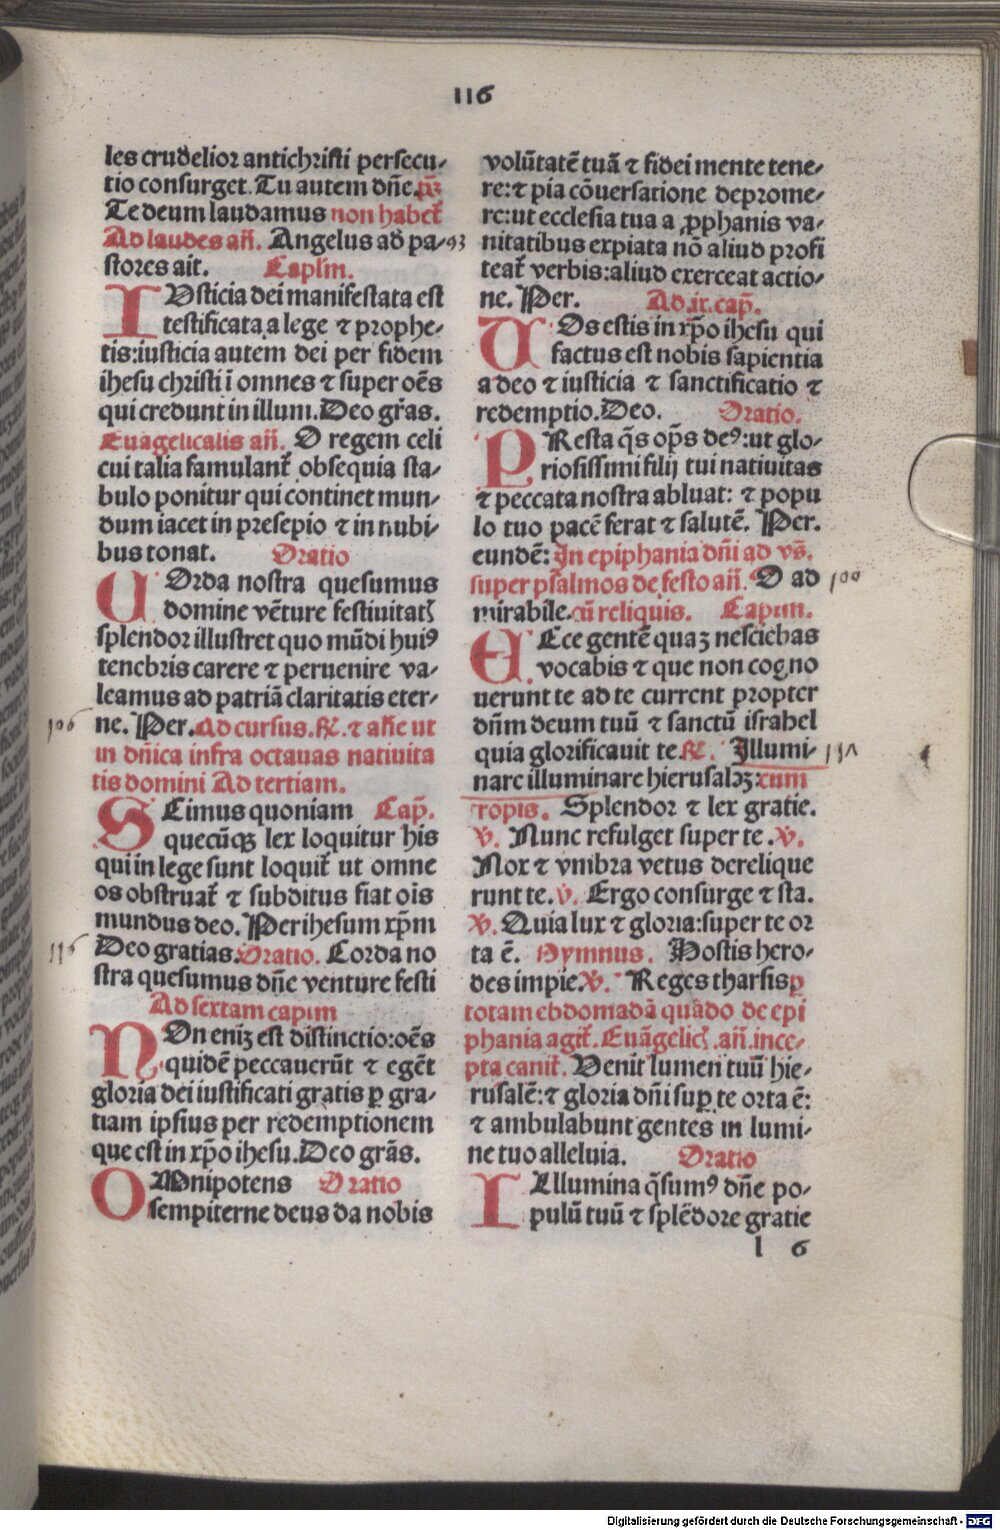 116
les crudelior antichristi persecu-
tio consurget. Tu autem dn̄e. ꝓ̄ꝫ
Te deum laudamus non habet᷑
Ad laudes añ. Angelus ad pa- 93
stores ait. Caplm̄.
IVsticia dei manifestata est
testificata a lege ⁊ prophe-
tis: iusticia autem dei per fidem
ihesu christi ī omnes ⁊ super oēs
qui credunt in illum. Deo gr̄as.
Euagelicalis añ. O regem celi
cui talia famulant᷑ obsequia sta-
bulo ponitur qui continet mun-
dum iacet in presepio ⁊ in nubi-
bus tonat. Oratio
COrda nostra quesumus
domine vēture festiuitatꝭ
splendor illustret quo mūdi huiꝰ
tenebris carere ⁊ peruenire va-
leamus ad patriā claritatis eter-
106 ne. Per. Ad cursus. ℟. ⁊ ali̅e ut
in dn̄ica infra octauas natiuita
tis domini Ad tertiam.
SCimus quoniam Cap̄.
quecūqꝫ lex loquitur his
qui in lege sunt loquit᷑ ut omne
os obstruat᷑ ⁊ subditus fiat oīs
mundus deo. Per ihesum xp̄m
116 Deo gratias. Oratio. Corda no
stra quesumus dn̄e venture festi
Ad sextam capim
NOn enīꝫ est distinctio: oēs
quidē peccauerūt ⁊ egēt
gloria dei iustificati gratis ꝑ gra-
tiam ipsius per redemptionem
que est in xp̄o ihesu. Deo grās.
OMnipotens Oratio
sempiterne deus da nobis
volūtatē tuā ⁊ fidei mente tene-
re: ⁊ pia cōuersatione deprome-
re: ut ecclesia tua a ꝓphanis va-
nitatibus expiata nō aliud profi
teat᷑ verbis: aliud exerceat actio-
ne. Per. Ad .ix. cap̄.
VOs estis in xp̄o ihesu qui
factus est nobis sapientia
a deo ⁊ iusticia ⁊ sanctificatio ⁊
redemptio. Deo. Oratio.
PResta q̄s op̄s deꝰ: ut glo-
riosissimi filij tui natiuitas
⁊ peccata nostra abluat: ⁊ popu
lo tuo pacē ferat ⁊ salutē. Per.
eundē: In epiphania dn̄i ad vs̄.
super psalmos de festo añ. O ad 100
mirabile. cū reliquis. Capim.
ECce gentē quaꝫ nesciebas
vocabis ⁊ que non cogno
uerunt te ad te current propter
dn̄m deum tuū ⁊ sanctū israhel
quia glorificauit te ℟. Illumi- 131
nare illuminare hierusalēꝫ: cum
tropis. Splendor ⁊ lex gratie.
℣. Nunc refulget super te. ℣.
Nox ⁊ vmbra vetus derelique
runt te. ℣. Ergo consurge ⁊ sta.
℣. Quia lux ⁊ gloria: super te or
ta ē. Hymnus. Hostis hero-
des impie ℣. Reges tharsis ꝑ
totam ebdomadā quādo de epi
phania agit᷑. Euāgelicꝭ. añ. ince-
pta canit᷑. Venit lumen tuū hie-
rusalē: ⁊ gloria dn̄i suꝑ te orta ē:
⁊ ambulabunt gentes in lumi-
ne tuo alleluia. Oratio
ILlumina q̄sumꝰ dn̄e po-
pulū tuū ⁊ splēdore gratie
l 6
Digitalisierung gefördert durch die Deutsche Forschungsgemeinschaft - DFG